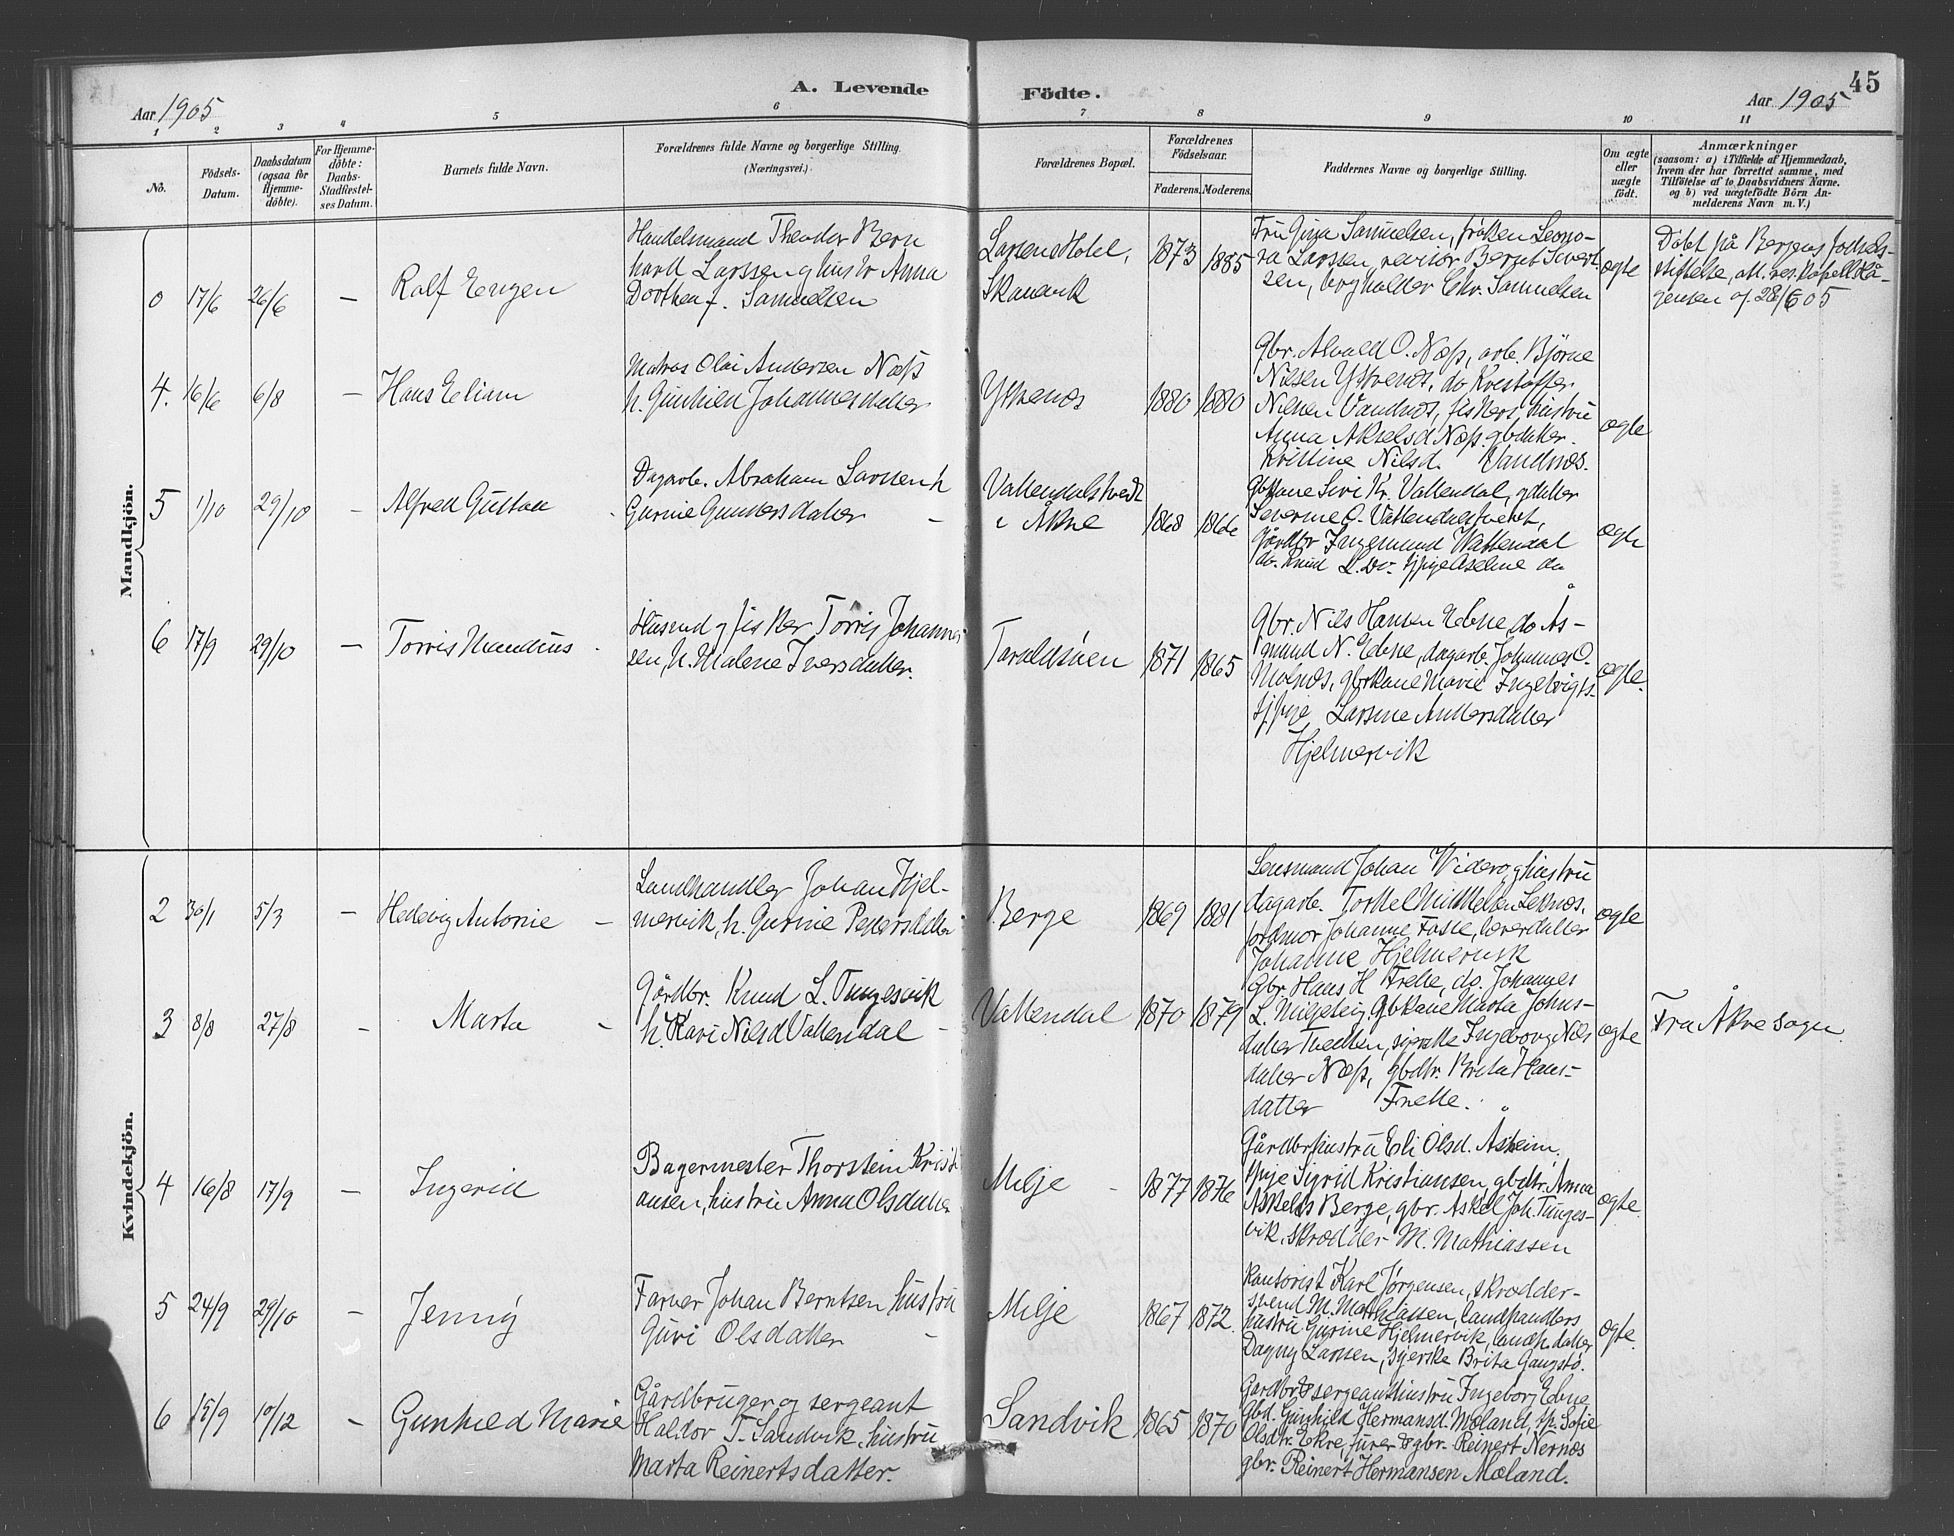 45
A. Levende Födte.
Aar 1905
Aar 1905
1 2 3 4 5 6 7 8 9 10 11
No.
Födsels-
Datum.
Daabsdatum
(ogsaa for
Hjemme-
döbte).
For Hjemme-
döbte:
Daabs-
Stadfæstel-
ses Datum.
Barnets fulde Navn.
Forældrenes fulde Navne og borgerlige Stilling.
(Næringsvei.)
Forældrenes Bopæl.
Forældrenes
Födselsaar.
Faderens. Moderens.
Faddernes Navne og borgerlige Stilling.
Om ægte
eller
uægte
födt.
Anmærkninger
(saasom: a) i Tilfælde af Hjemmedaab,
hvem der har forrettet samme, med
Tilföielse af to Daabsvidners Navne.
og b) ved uægtefödte Börn An-
melderens Navn m. V.)
Mandkjön.
0 17/6 26/6 —
Rolf Eugen
Handelsmand Theodor Bern
hard Larssen og hustr Anna
Dorthea f. Samuelsen
Larsens Hotel,
Skånevik
1873 1885
Fru Gina Samuelsen, frøken Leono-
ra Larssen, revisor Bernt Sivert
sen, boghalder Chr. Samuelsen
ægte
Døbt på Bergens fødsels-
stiftelse, att. res. kapell Hå-
gensen af 28/6 05
4. 16/6 6/8 —
Hans Eliam
Matros Olai Andersen Næss
h. Gunhild Johannesdatter
Ytrenes
1880 1880
Gbr. Alvald O. Næss, arb. Bjørne
Nilsen Ystvendt, do Kristoffer
Nilsen Vandnes, fiskers hustru
Anna Akselsd Næss. gbdatter
Kristine Nilsd. Vandnes.
ægte
5 1/10 29/10 -
Alfred Gustav
Dagarb. Abraham Larssen h
Gurine Gundersdatter
Vattendalstvedt
i Åkre
1868 1866
Gbkone Siri Kr. Vattendal, gdatter
Severine O. Vattendalstvedt,
Gårdbr Ingemund Vattendal
do. Knud L. Do. pige Aseline do
ægte
6 17/9 29/10 —
Torris Mandius
Husmd og fisker Torris Johannes
sen, h. Malene Iversdatter.
Taraldsøen
1871 1865
Gbr. Nils Hansen Ebne, do Ås-
mund N. Ebne, dagarb. Johannes O.
Molnes, gbrkone Marie Ingelvigts-
pige Larsine Andersdatter
Hjelmervik
ægte.
Kvindekjön.
2 30/1 5/3 —
Hedevig Antonie
Landhandler Johan Hjel-
mervik, h. Gurine Pedersdatter
Berge
1869 1881
Lensmand Johan Viderø og hustru
dagarb. Torkel Mikkelsen Leknes,
jordmor Johanne Fosse, lærerdatter
Johanne Hjelmervik
ægte
3 8/8 27/8 -
Marta
Gårdbr. Knud L. Tungesvik
h. Kari Nilsd Vattendal
Vattendal
1870 1879
Gbr Hans H Frette, do. Johannes
L. Miljeteig, Gbkone Marta Johns-
datter Tvedten, syerske Ingeborg Nils
datter Næss, gbdtr. Brita Hans-
datter Frette.
ægte
Fra Åkre sogn.
4 16/8 17/9 —
Ingerid
Bagermester Thorstein Kristi
ansen, hustru Anna Olsdatter
Milje
1877 1876
Gårdbrhustru Eli Olsd. Åsheim.
pige Sigrid Kristiansen, gbdtr. Anna
Askelds Berge, gbr. Askel Joh. Tunges-
vik, skrædder M. Mathiassen
ægte.
5 24/9 29/10 —
Jenny
Farver Johan Berntsen hustru
Guri Olsdatter
Milje
1867 1872.
Kontorist Karl Jørgensen, skrædder-
svend M. Mathiassen, landhandlers
hustru Gurine Hjelmervik, landh.datter
Dagny Larssen, syerske Brita Gangstø.
ægte.
6 15/9 10/12 -
Gunhild Marie
Gårdbruger og sergeant
Haldor T. Sandvik, hustru
Marta Reinertsdatter.
Sandvik
1865 1870
Gardbr & sergeanthustru Ingeborg Ebne
Gbd. Gunhild Hermansd. Mæland, p. Sofie
Olsdtr. Ekre, furer & gbr. Reinert Nernæs
gbr. Reinert Hermansen Mæland.